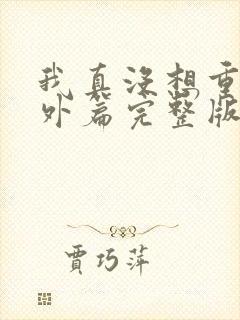 我真没想重
外篇完整版
贾巧萍